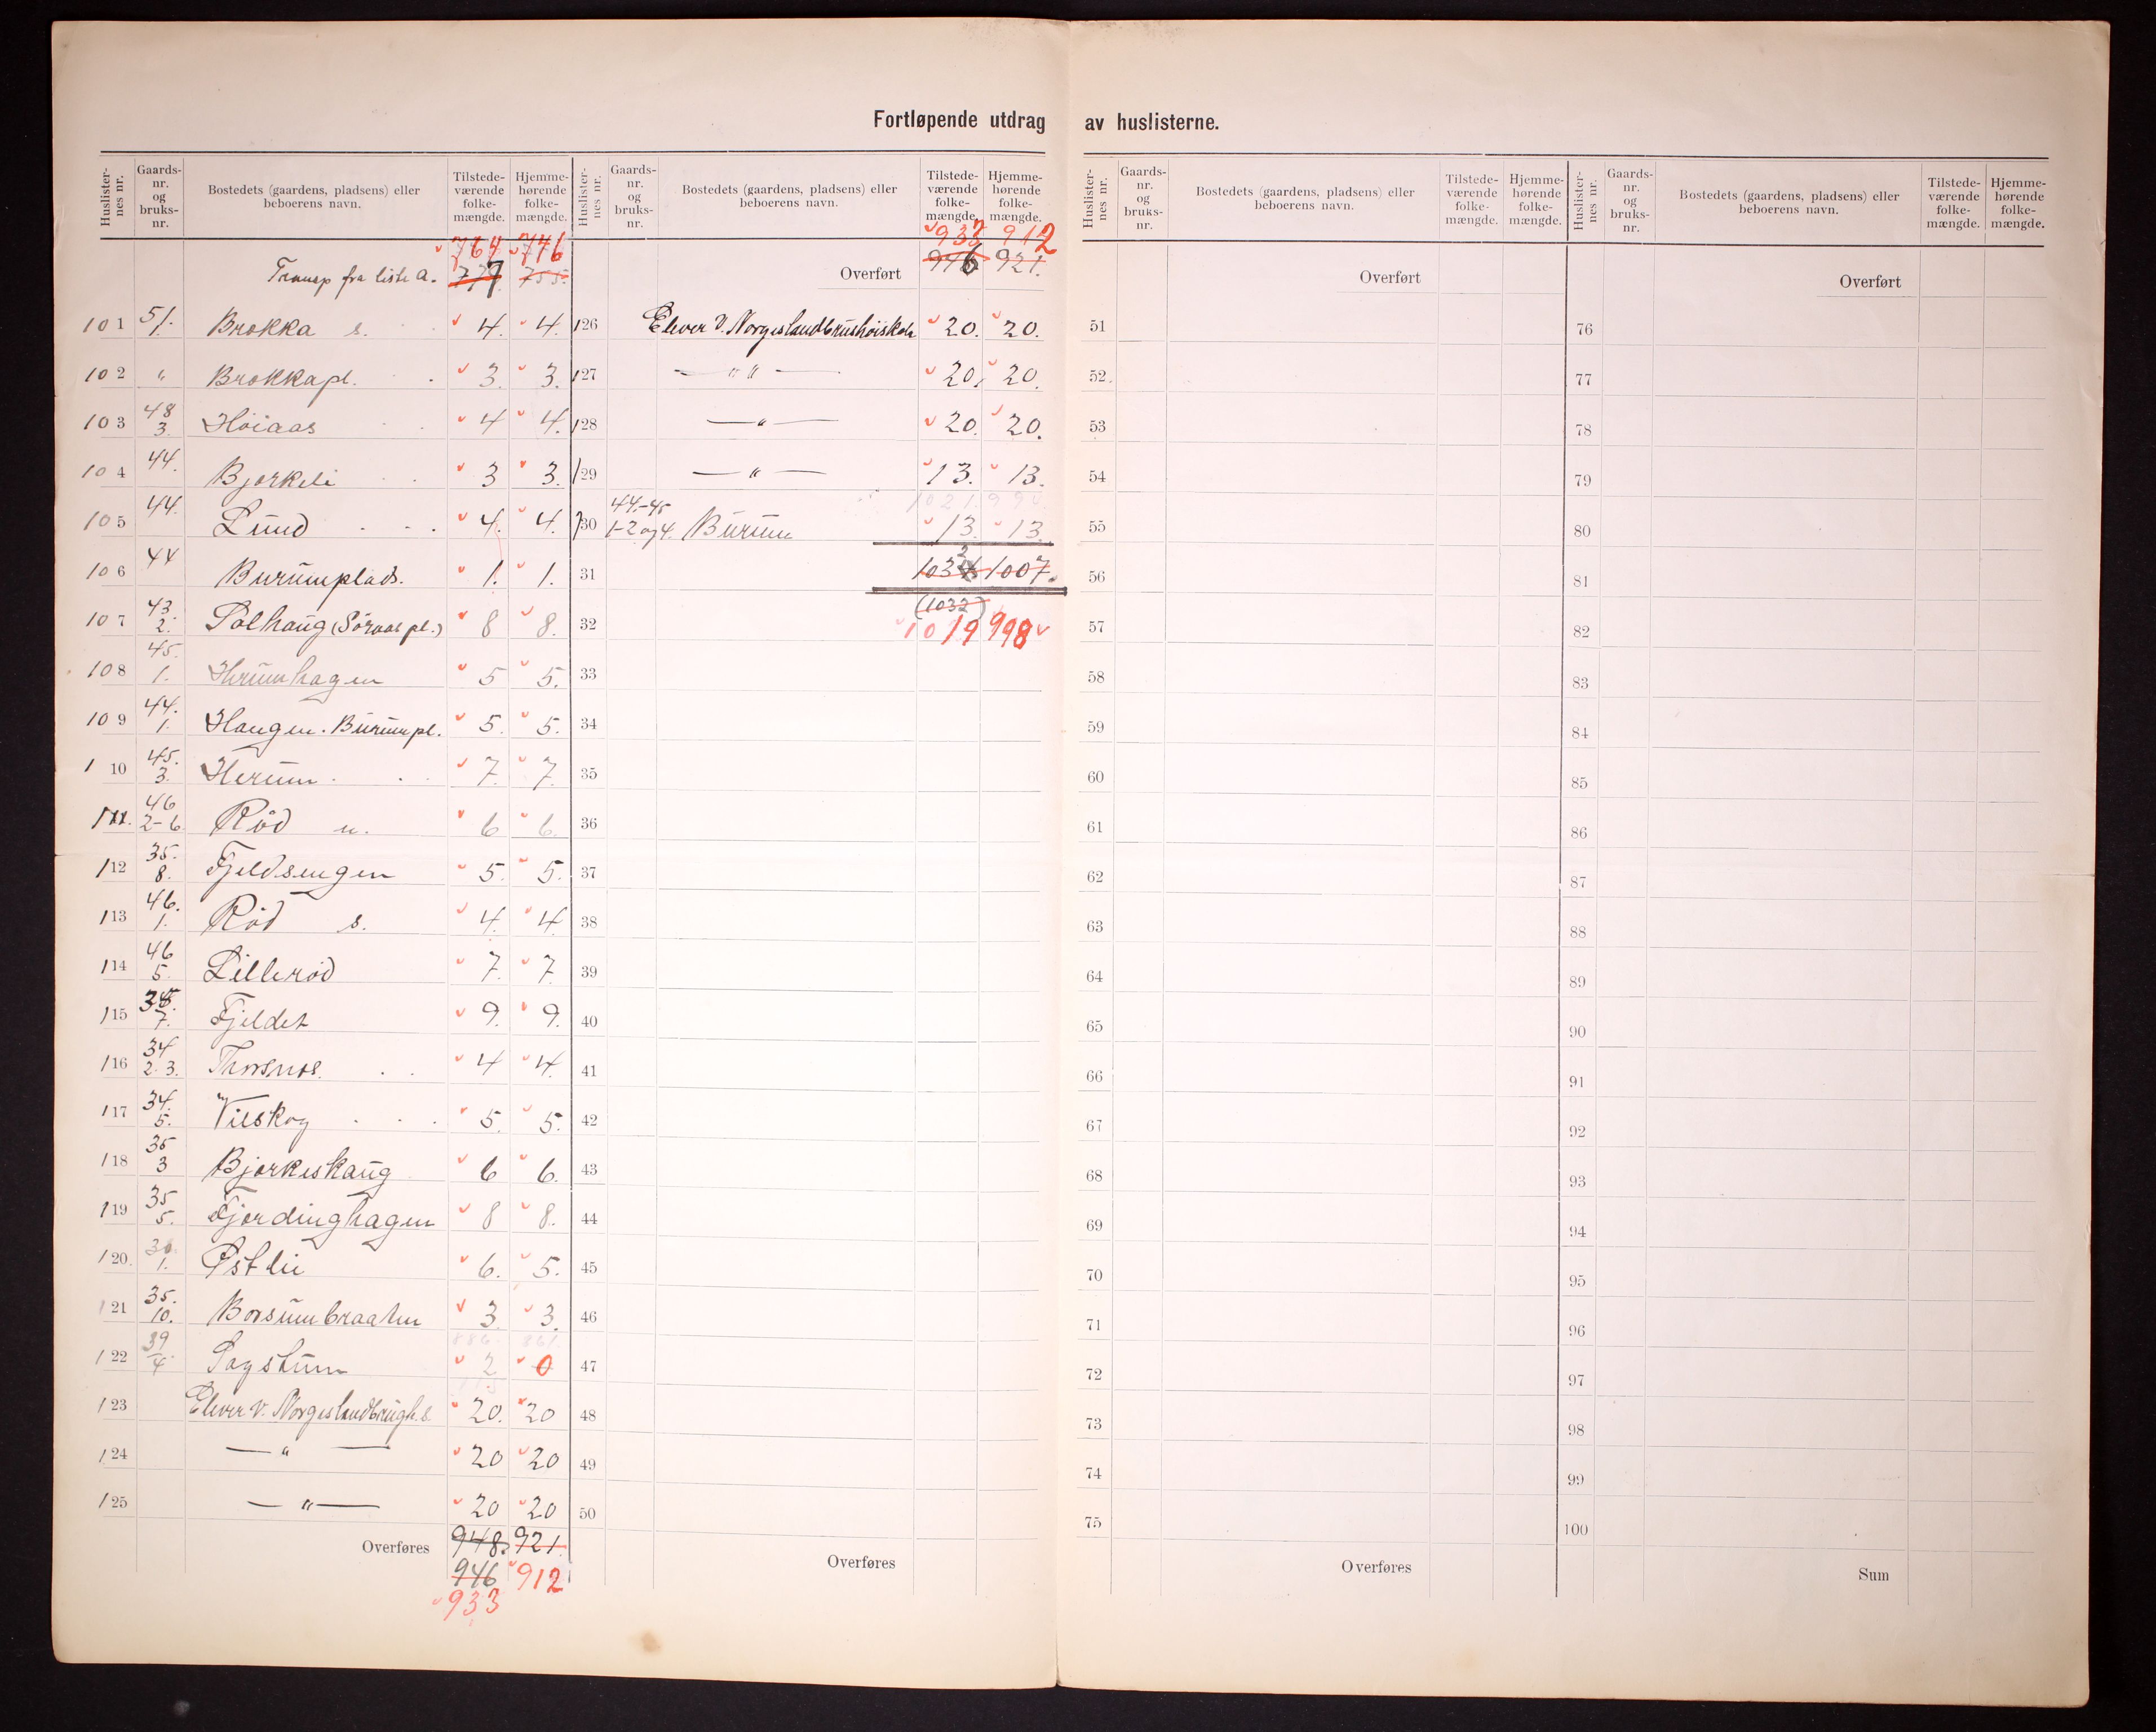 Fortløpende utdrag av huslisterne.
Huslisternes nr. Gaardsnr. og bruksnr. Bostedets (gaardens, pladsens) eller beboerens navn. Tilstedeværende folkemængde. Hjemmehørende folkemængde.
764 746
Transp fra liste A. 777 755.
101 51. 1. Brokka s. 4. 4.
102 " Brokkapl. 3. 3.
103 48 3. Höiaas 4 4.
104 44. Bjorkeli 3 3.
105 44. Lund 4. 4.
106 44 Burumplads. 1. 1.
107 43. 2. Solhaug (Söraas pl.) 8 8.
108 45. 1. Herumhagen 5 5.
109 44. 1. Haugen. Burumpl. 5. 5.
110 45. 3. Herum 7. 7.
111. 46 2-6 Röd n. 6 6.
112 35. 8. Fjeldsengen 5. 5.
113 46. 1. Röd s. 4. 4.
114 46 5. Lilleröd 7. 7.
115 7. Fjeldet 9. 9.
116 34 2. 3. Thorsnos. 4 4.
117 34. 5. Vilskog 5. 5.
118 35 3 Bjorkeskaug 6 6.
119 35 5. Fjordinghagen 8 8.
120. 30. 1. Östlii 6. 5.
121 35. 10. Borsumbraaten 3. 3.
886. 861.
122 39 4. Sagstuen 2 0
123 Elever v. Norgeslandbrugh.s. 20. 20
124 — " — 20 20
125 — " — 20 20
Overføres 948. 921.
946 912
933
Huslisternes nr. Gaardsnr. og bruksnr. Bostedets (gaardens, pladsens) eller beboerens navn. Tilstedeværende folkemængde. Hjemmehørende folkemængde.
933 912
Overført 946 921.
126 Elever v. Norgeslandbrukshöiskole 20. 20.
127 — " " — 20. 20.
128 — " — 20. 20.
129 — " — 13. 13.
1021. 994.
130 44.-45 1-2 og 4. Burum 13. 13.
31 1007.
32 (1032)
1019 998
33
34
35
36
37
38
39
40
41
42
43
44
45
46
47
48
49
50
Overføres
Huslisternes nr. Gaardsnr. og bruksnr. Bostedets (gaardens, pladsens) eller beboerens navn. Tilstedeværende folkemængde. Hjemmehørende folkemængde.
Overført
51
52
53
54
55
56
57
58
59
60
61
62
63
64
65
66
67
68
69
70
71
72
73
74
75
Overføres
Huslisternes nr. Gaardsnr. og bruksnr. Bostedets (gaardens, pladsens) eller beboerens navn. Tilstedeværende folkemængde. Hjemmehørende folkemængde.
Overført
76
77
78
79
80
81
82
83
84
85
86
87
88
89
90
91
92
93
94
95
96
97
98
99
100
Sum